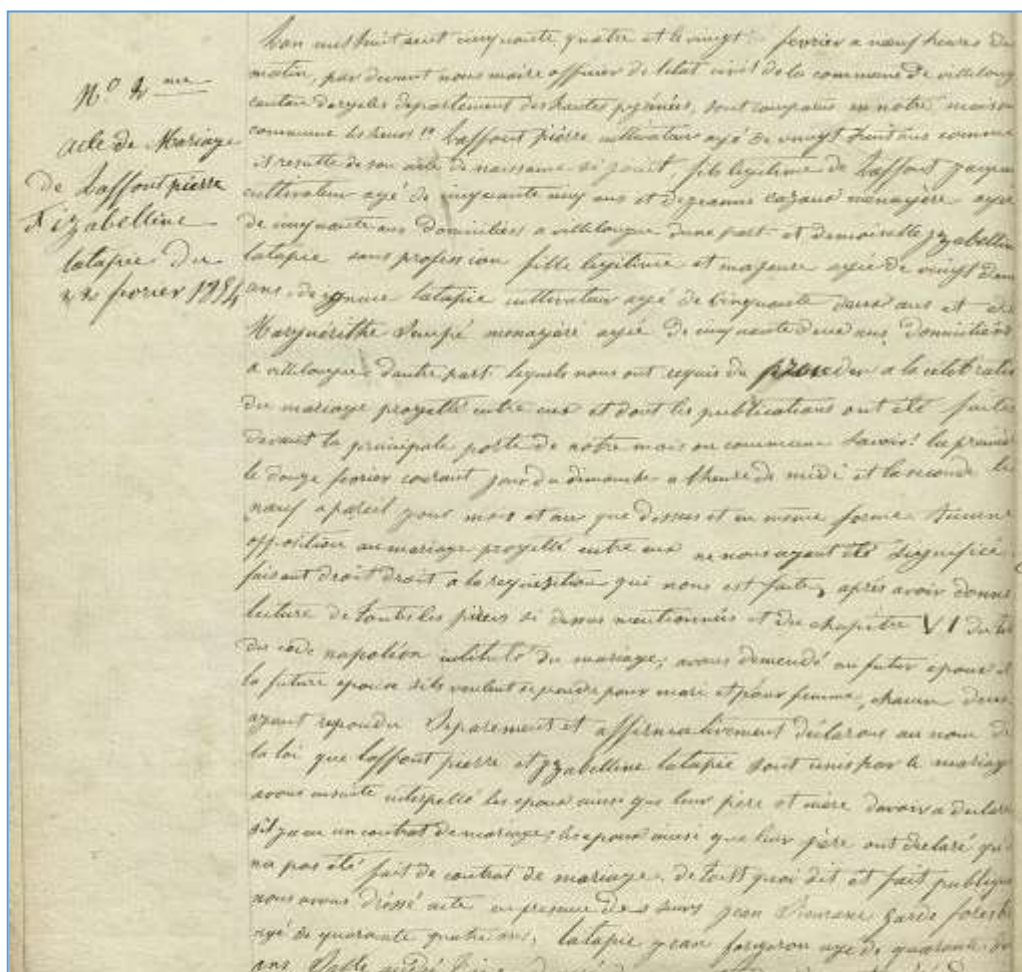 N° 2 me
acte de Mariage
de Laffont pierre
& izabelline
latapie du
22 fevrier 1854
Lan mil huit cent cinquante quatre et le vingt fevrier a neuf heures du
matin, par devant nous maire officier de letat civil de la commune de villelong
canton departement des hautes pyrénées, sont comparus en notre maison
commune les sieurs 1° Laffont pierre cultivateur agé de vingt huit ans comme
il resulte de son acte de naissance si joint, fils legitime de Laffont jacques
cultivateur agé de cinquante cinq ans et de jeanne cazaux menagère agée
de cinquante ans domiciliés a villelongue dune part et demoiselle yzabelline
latapie sans profession fille legitime et majeure agée de vingt deux
ans, de latapie cultivateur agé de cinquante deux ans et de
Marguerithe menagère agée de cinquante deux ans, domiciliés
a villelongue dautre part lequels nous ont requis de proceder a la celebration
du mariage projetté entre eux et dont les publications ont été faites
devant la principale porte de notre maison commune Savoir: la premiere
le douze fevrier courant jour du dimanche a lheure de midi et la seconde le
neuf apareil jour mois et an que dessus et en meme forme. Aucune
opposition au mariage projetté entre eux ne nous ayant été Signifiée
faisant droit droit a la requisition qui nous est faite, après avoir donné
lecture de toutes les pièces si dessus mentionnées et du chapitre VI du
du code napoléon intitulé du mariage, avons demendé au futur epoux et
la future epouse sils veulent se prendre pour mari et pour femme, chacun deux
ayant repondu Separement et affirmativement déclarons au nom de
la loi que laffont pierre et yzabelline latapie sont unis par le mariage
avons ensuite interpellé les epoux ainsi que leur père et mère davoir a declarer
sil y a eu un contrat de mariage; les epoux ainsi que leur père ont declaré qu
na pas été fait de contrat de mariage. de tout quoi dit et fait publiqu
nous avons dréssé acte en presence des sieurs jean garde forestier
agé de quarante quatre ans, latapie jean forgeron agé de quarante
ans